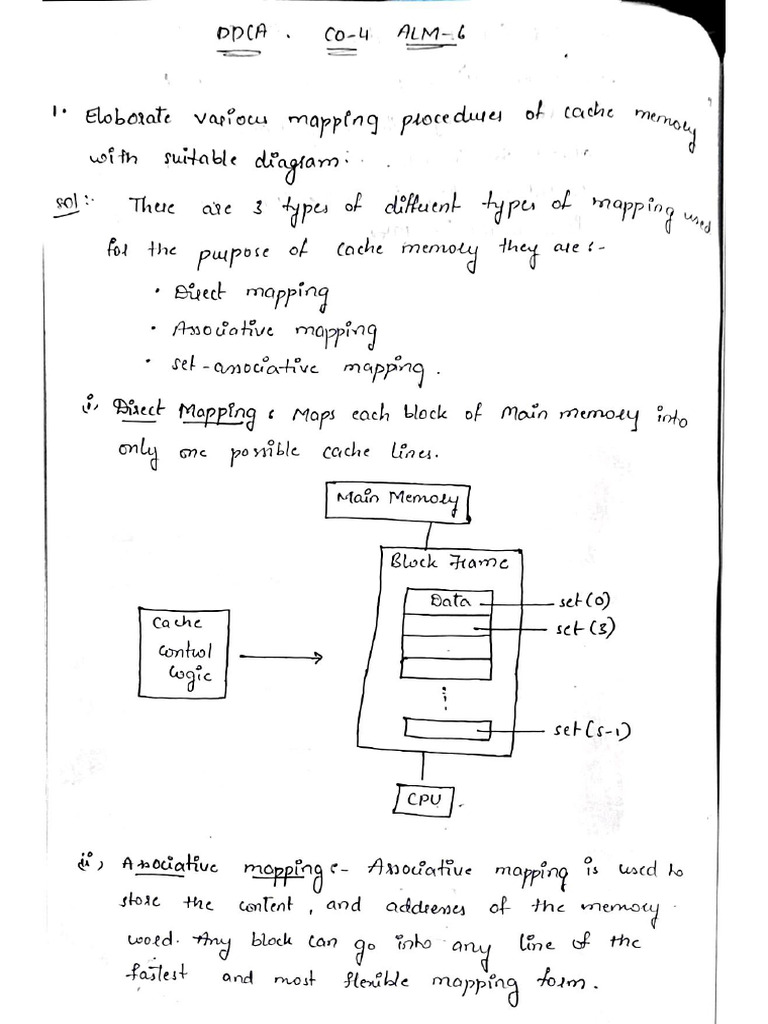 DDCA . CO-4 ALM-6
1. Eloborate various mapping procedures of cache memory
with suitable diagram:
sol:- There are 3 types of different types of mapping used
for the purpose of cache memory they are :-
• Direct mapping
• Associative mapping
• set-associative mapping.
i, Direct Mapping : Maps each block of Main memory into
only one possible cache lines.
Main Memory
Block Frame
Data
set(0)
set(3)
Cache
control
logic
set(s-1)
CPU
ii, Associative mapping :- Associative mapping is used to
store the content, and addresses of the memory
word. Any block can go into any line of the
fastest and most flexible mapping form.